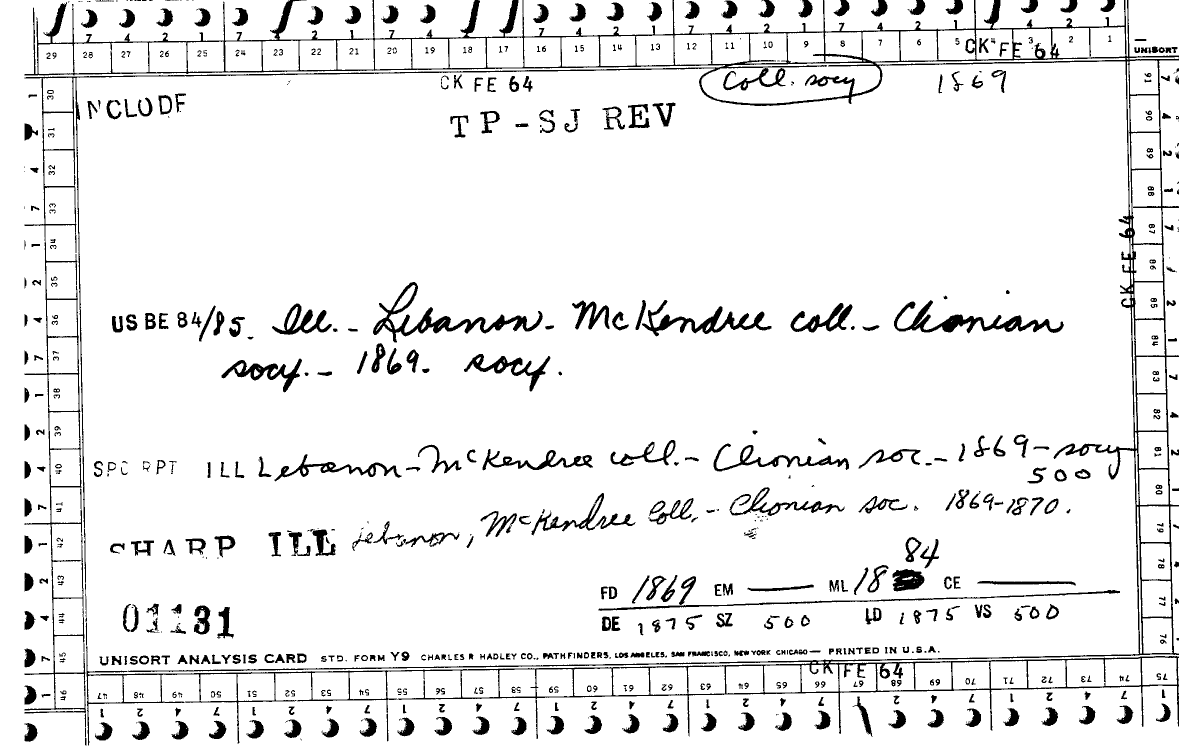 7 4 2 1 7 4 2 1 7 4 2 1 7 4 2 1 7 4 2 1 7 4 2 1 7 4 2 1
29 28 27 26 25 24 23 22 21 20 19 18 17 16 15 14 13 12 11 10 9 8 7 6 5 4 3 2 1 UNISORT
CK FE 64
INCLUDE CK FE 64 Coll. socy 1869
TP-SJ REV
CK FE 64
US BE 84/85. Ill. - Lebanon - McKendree coll. - Clionian
socy. - 1869. socy.
SPC RPT ILL Lebanon - McKendree coll. - Clionian soc. - 1869 - socy
500
SHARP ILL Lebanon, McKendree Coll. - Clionian soc. 1869-1870.
84
FD 1869 EM — ML 18 CE —
01131 DE 1875 SZ 500 LD 1875 VS 500
UNISORT ANALYSIS CARD STD. FORM Y9 CHARLES R HADLEY CO., PATHFINDERS, LOS ANGELES, SAN FRANCISCO, NEW YORK CHICAGO — PRINTED IN U.S.A.
CK FE 64
30 31 32 33 34 35 36 37 38 39 40 41 42 43 44 45 46
91 90 89 88 87 86 85 84 83 82 81 80 79 78 77 76
47 48 49 50 51 52 53 54 55 56 57 58 59 60 61 62 63 64 65 66 67 68 69 70 71 72 73 74 75